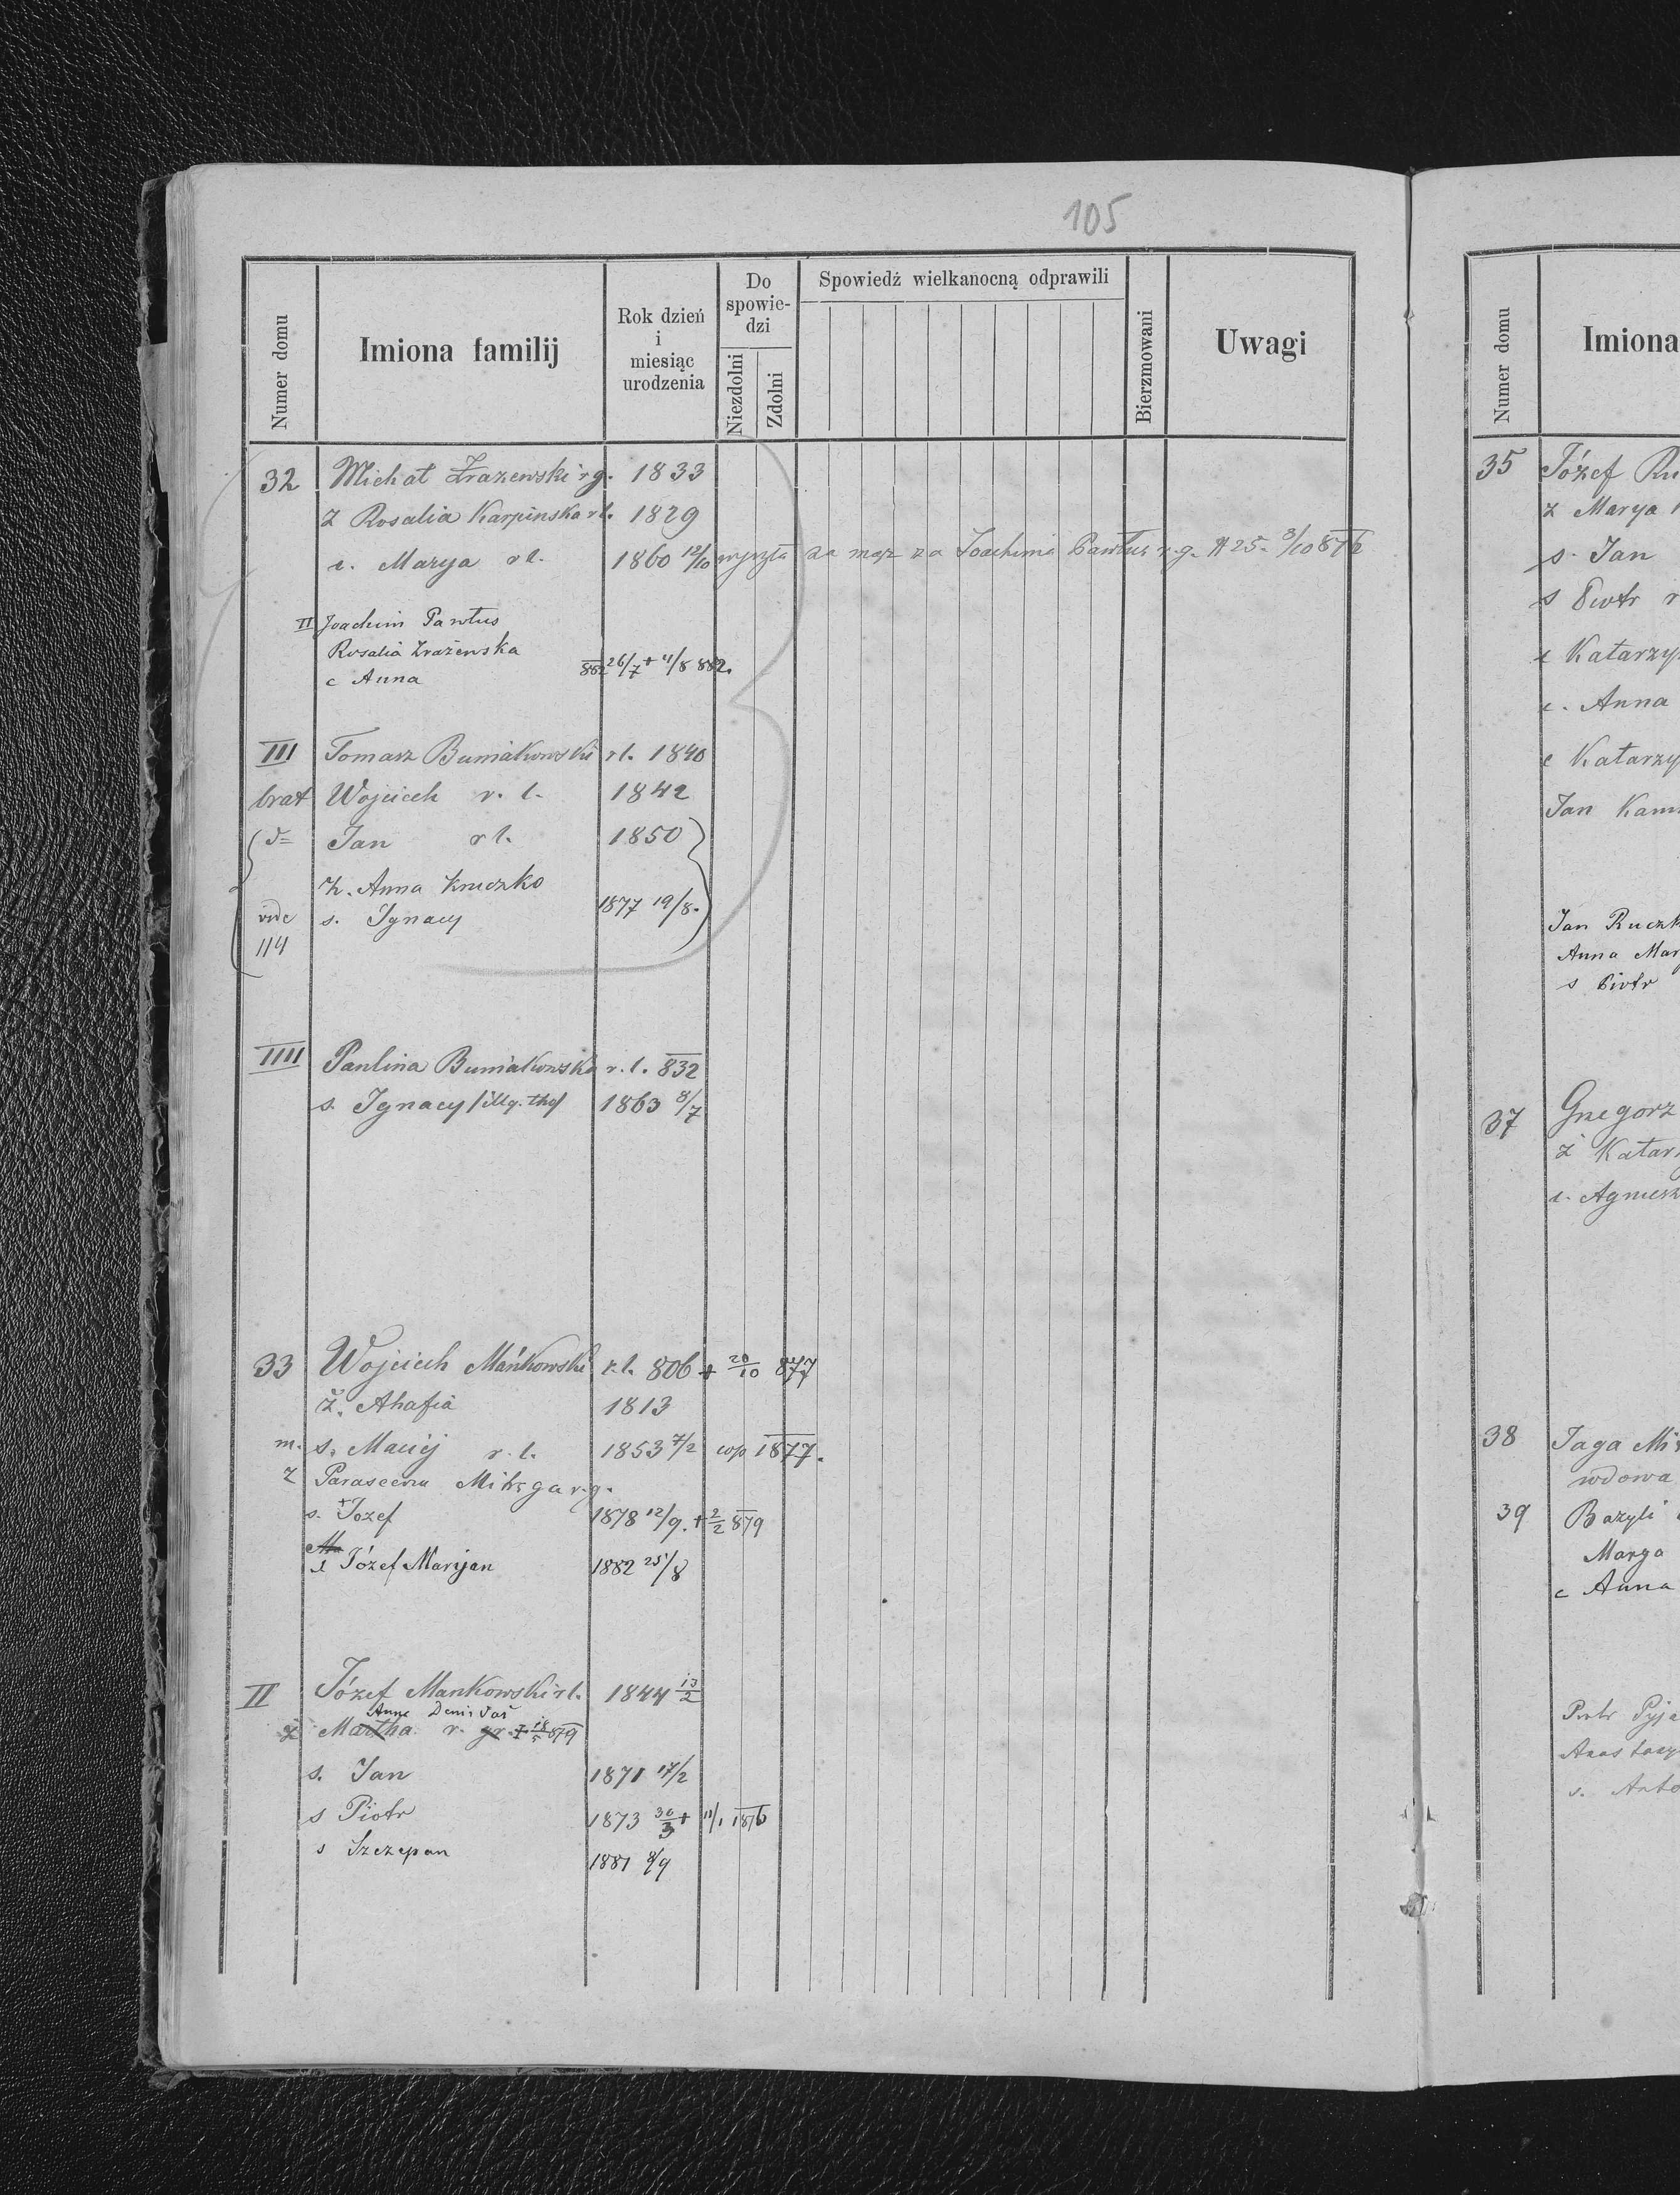 105
Numer domu
Imiona familij
Rok dzień
i
miesiąc
urodzenia
Do
spowie-
dzi
Niezdolni
Zdolni
Spowiedź wielkanocną odprawili
Bierzmowani
Uwagi
32 Michał Zrazewski rg. 1833
Z Rosalia Karpinska rl. 1829
c. Marya rl. 1860 12/10 wyszła za mąż za Joachima Pawlus r.g. # 25. 3/10 876
II Joachim Pawlus
Rosalia Zrażewska
c Anna 882 26/7 + 11/8 882.
III Tomasz Buniakowski rl. 1840
brat Wojciech r. l. 1842
d= Jan rl. 1850
ż. Anna Kruczko
vide s. Ignacy 1877 19/8.
114
IIII Paulina Buniakowska r.l. 832
s. Ignacy /illg. thi/ 1863 8/7
33 Wojciech Mańkowski r.l. 806 + 20/10 877
Ż. Ahafia 1813
m. s. Maciej r.l. 1853 7/2 cop 1877.
Z Parascewa Mihsga r.g.
s. + Jozef 1878 12/9. + 2/2 879
s Józef Maryan 1882 25/8
II Józef Mankowski rl. 1844 13/2
Anne Denis
ż Martha r. gr. + 18/5 879
s. Jan 1871 17/2
s Piotr 1873 30/3 + 11/1 1876
s Szczepan 1881 8/9
Numer domu
Imiona
35 Józef
Z Marya
s. Jan
s Piotr
c
c. Anna
c
Jan
Jan
Anna
s Piotr
37 Gregorz
Ż
c.
38 Jaga
wdowa
39 Bazyli
Marya
c Anna
Piotr
s.